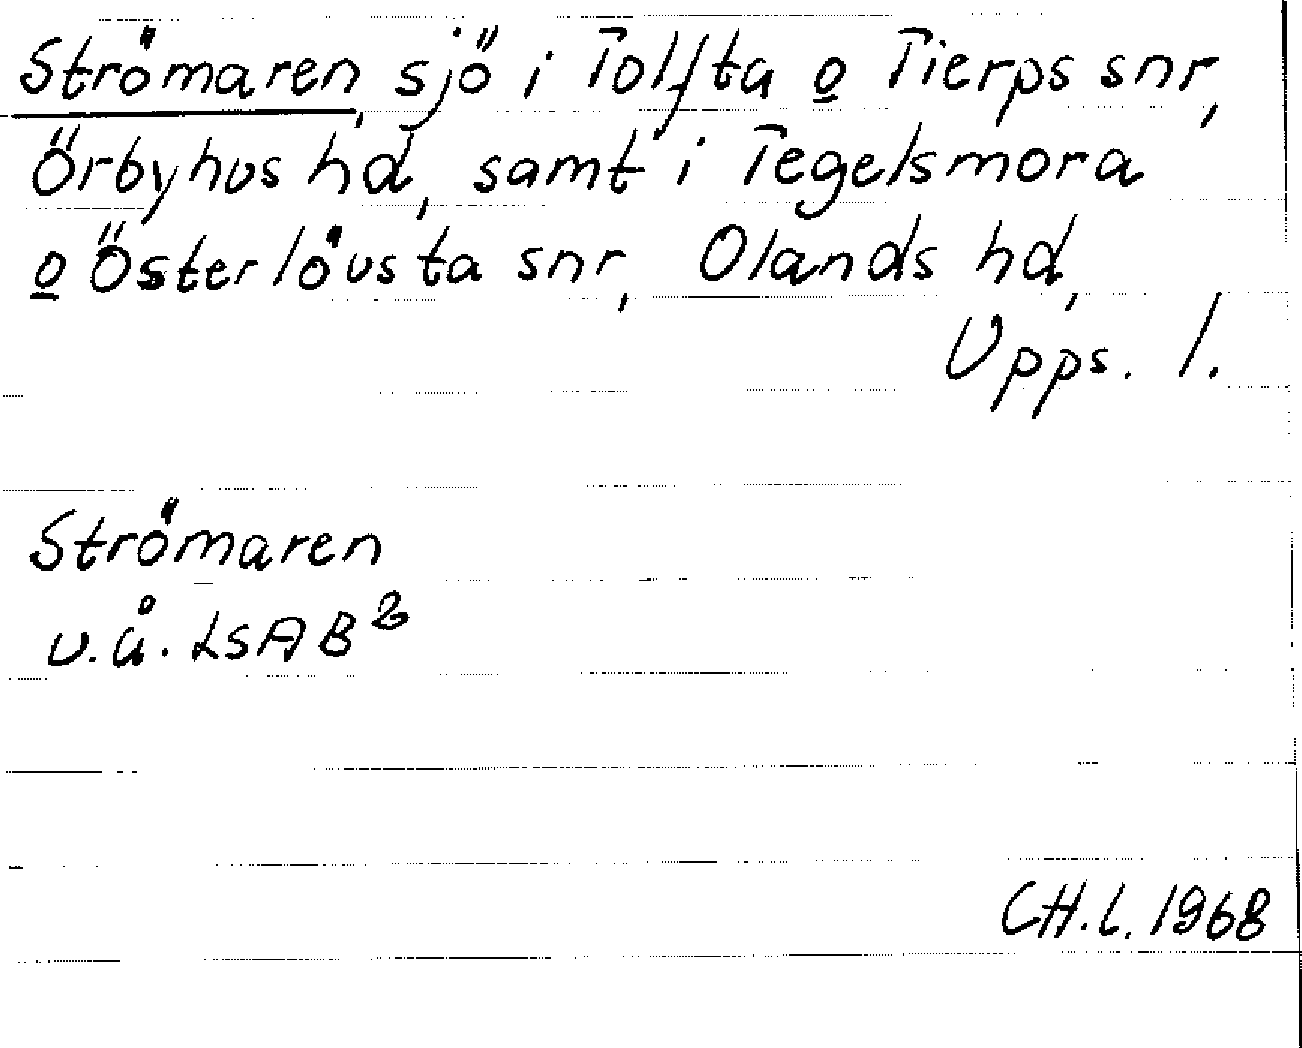 Strömaren, sjö i Tolfta o Tierps snr,
Örbyhus hd, samt i Tegelsmora
o Österlövsta snr, Olands hd,
Upps. l.
Strömaren
u.å. LSAB²
CH.L. 1968